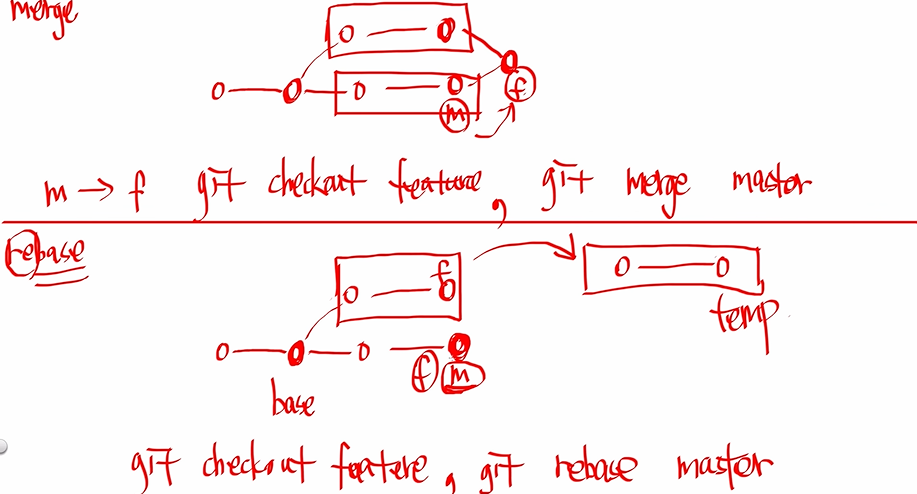 merge
f
m
m → f git checkout feature, git merge master
rebase
f
temp
f m
base
git checkout feature, git rebase master